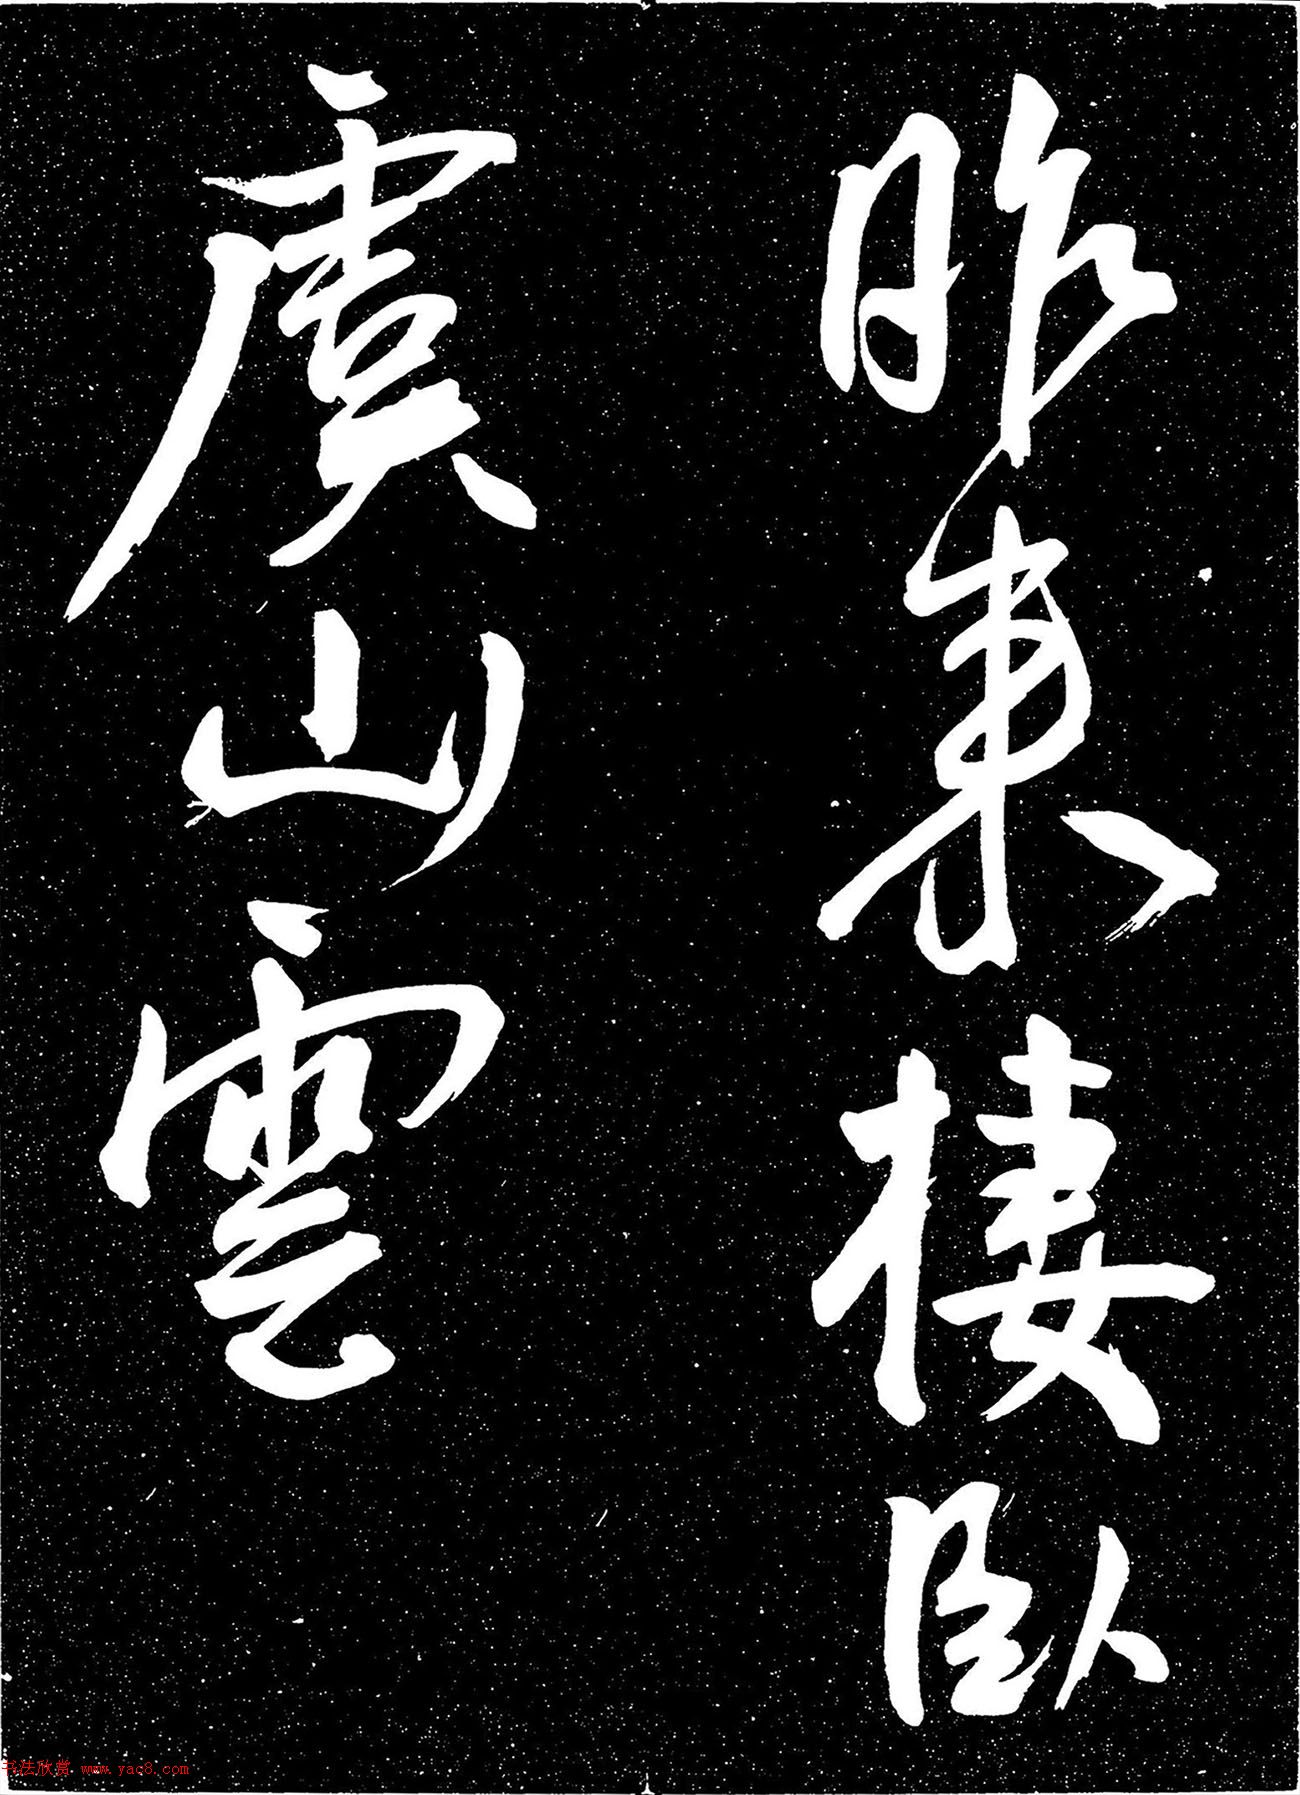 昨來棲臥
虞山雲
书法欣赏 www.yac8.com